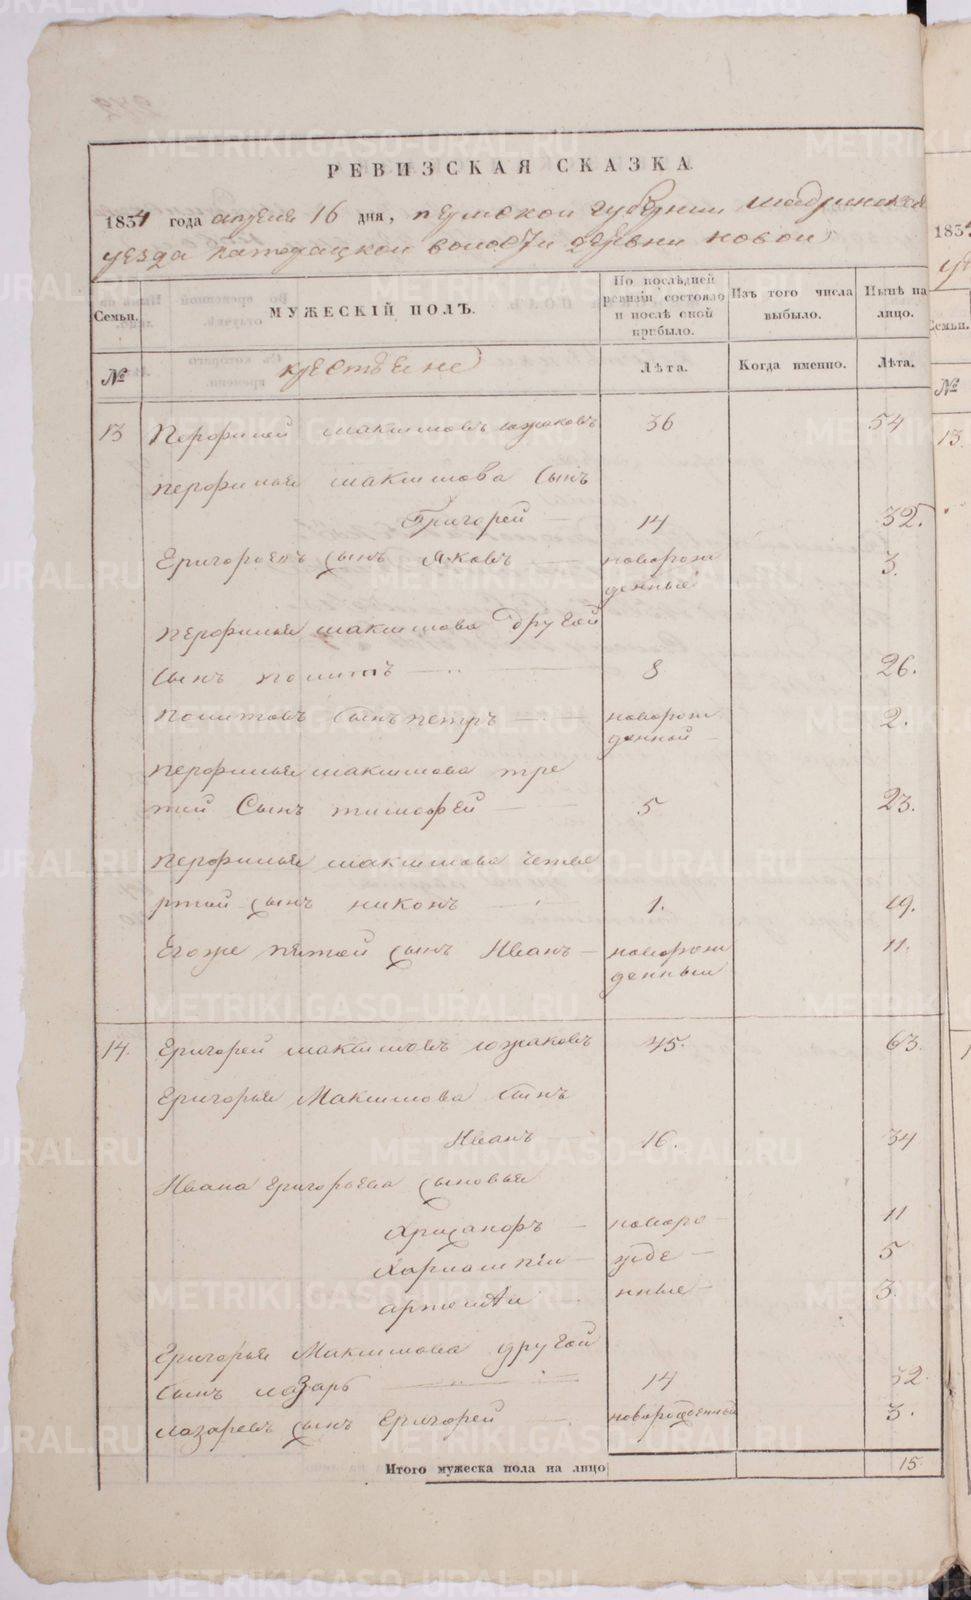 РЕВИЗСКАЯ СКАЗКА
1834 года апреля 16 дня, пермской губернии шадринска
уезда катедацкой волости деревни новой
Семьи.
МУЖЕСКІЙ ПОЛЪ.
По послѣдней ревизіи состояло и послѣ оной прибыло.
Изъ того числа выбыло.
Нынѣ на лицо.
№
крестьяне
Лѣта.
Когда именно.
Лѣта.
13 Перфилей максимовъ южаковъ 36 54
перфилья максимова Сынъ
Григорей 14 32.
Григорьевъ сынъ Яковъ новорож 3.
денные
перфилья максимова другой
Сынъ политъ 8 26.
политовъ сынъ петръ новорож 2.
денной
перфилья максимова тре
тей Сынъ тимофей 5 23.
перфилья максимова четве
ртой сынъ никонъ 1. 19.
Егоже пятой сынъ Иванъ новорож 11.
денныи
14. Григорей максимовъ южаковъ 45. 63.
Григорья Максимова сынъ
Иванъ 16. 34
Ивана григорьева сыновья
Хрисанфъ новоро 11
Харлампіи жде 5
артемѣи нные 3.
Григорья Максимова другой
сынъ лазарь 14 32.
лазаревъ сынъ Григорей новорожденный 3.
Итого мужеска пола на лицо 15
METRIKI.GASO-URAL.RU